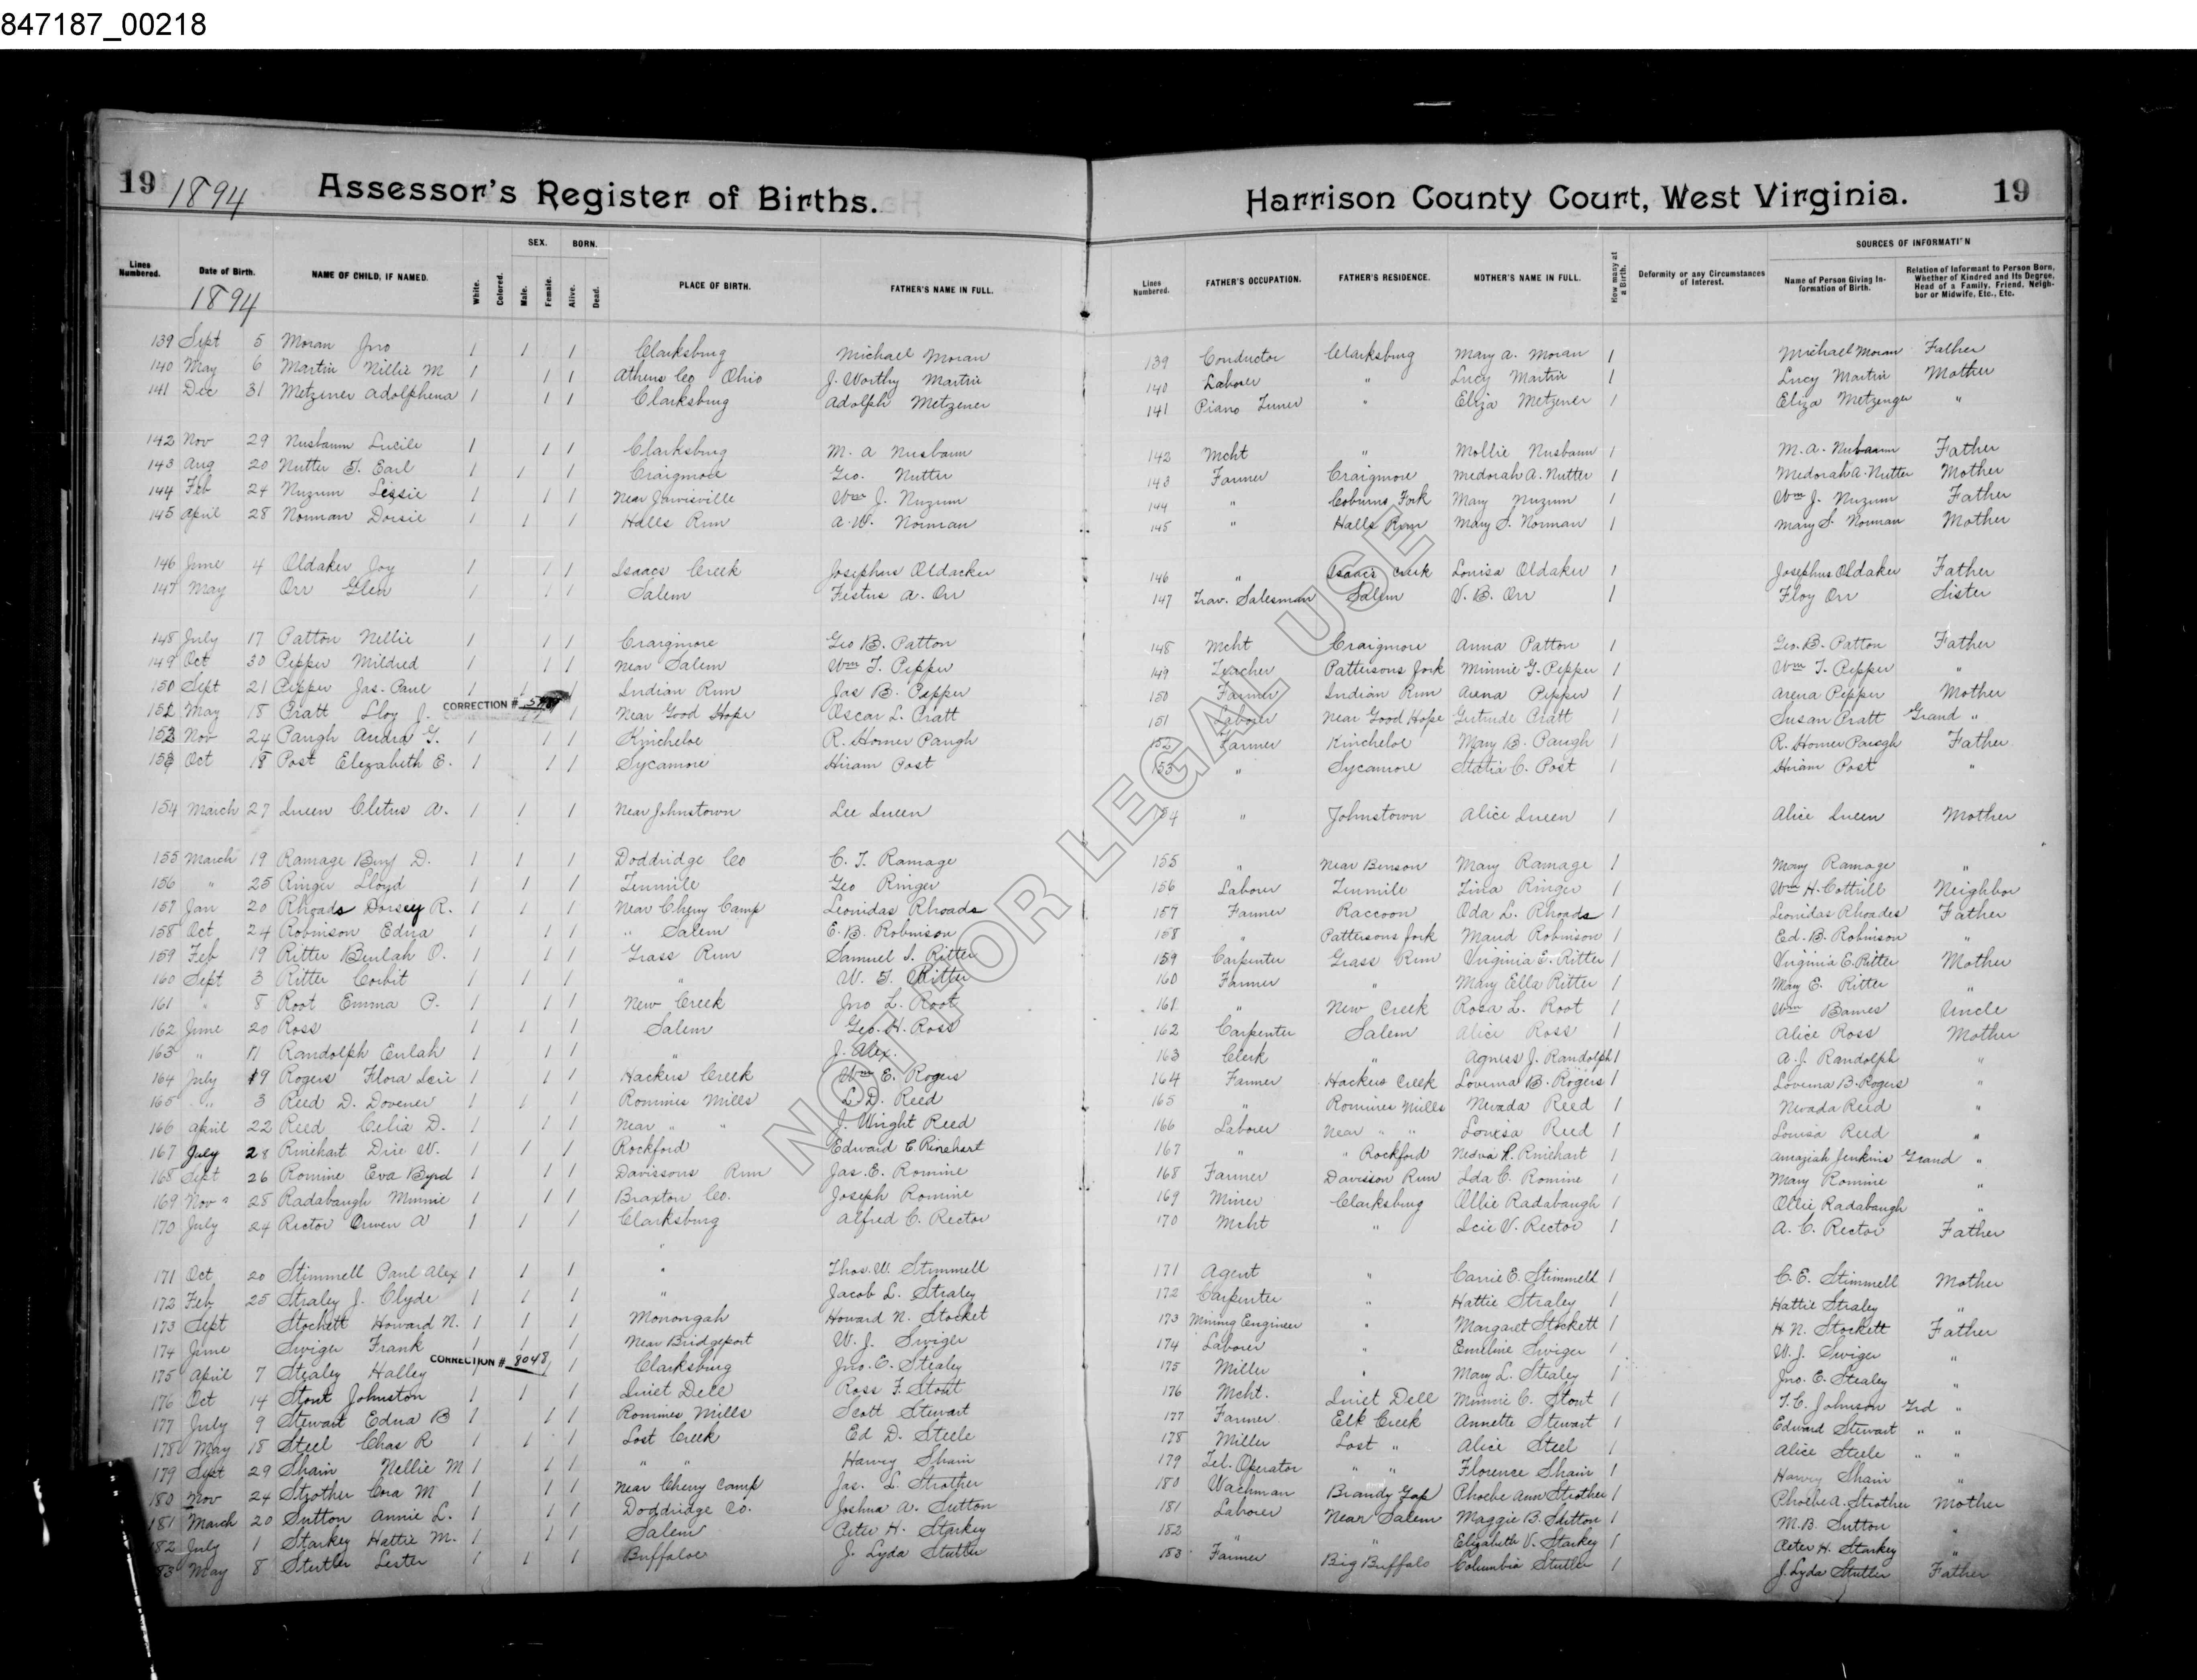 847187_00218
19 1894 Assessor's Register of Births.
Lines Numbered. Date of Birth. NAME OF CHILD, IF NAMED. White. Colored. SEX. Male. Female. BORN. Alive. Dead. PLACE OF BIRTH. FATHER'S NAME IN FULL.
1894
139 Sept 5 Moran Jno 1 1 1 Clarksburg Michael Moran
140 May 6 Martin Nillie M 1 1 1 Athens Co Ohio J. Worthy Martin
141 Dec 31 Metzener Adolphena 1 1 1 Clarksburg Adolph Metzener
142 Nov 29 Nusbaum Lucile 1 1 1 Clarksburg M. A Nusbaum
143 Aug 20 Nutter T. Earl 1 1 1 Craigmore Geo. Nutter
144 Feb 24 Nuzum Lessie 1 1 1 Near Jarvisville Wm J. Nuzum
145 April 28 Norman Dorsie 1 1 1 Halls Run A. W. Norman
146 June 4 Oldaker Joy 1 1 1 Isaacs Creek Josephus Oldacker
147 May Orr Glen 1 1 1 Salem Festus A. Orr
148 July 17 Patton Nellie 1 1 1 Craigmore Geo B. Patton
149 Oct 30 Pepper Mildred 1 1 1 Near Salem Wm T. Pepper
150 Sept 21 Pepper Jas. Paul 1 1 1 Indian Run Jas B. Pepper
151 May 18 Pratt Lloy J. CORRECTION # 1 Near Good Hope Oscar L. Pratt
152 Nov 24 Paugh Audra G. 1 1 1 Kincheloe R. Homer Paugh
153 Oct 18 Post Elizabeth E. 1 1 1 Sycamore Hiram Post
154 March 27 Queen Cletus A. 1 1 1 Near Johnstown Lee Queen
155 March 19 Ramage Benj D. 1 1 1 Doddridge Co C. T. Ramage
156 " 25 Ringer Lloyd 1 1 1 Tenmile Geo Ringer
157 Jan 20 Rhoads Dorsey R. 1 1 1 Near Cherry Camp Leonidas Rhoads
158 Oct 24 Robinson Edna 1 1 1 " Salem E. B. Robinson
159 Feb 19 Ritter Beulah O. 1 1 1 Grass Run Samuel S. Ritter
160 Sept 3 Ritter Corbit 1 1 1 " W. T. Ritter
161 " 8 Root Emma P. 1 1 1 New Creek Jno L. Root
162 June 20 Ross 1 1 1 Salem Geo. H. Ross
163 " 11 Randolph Eulah 1 1 1 " J. Alex.
164 July 19 Rogers Flora Icie 1 1 1 Hackers Creek Wm E. Rogers
165 " 3 Reed D. Dovener 1 1 1 Romines Mills L. D. Reed
166 April 22 Reed Celia D. 1 1 1 Near " " J. Wright Reed
167 July 28 Rinehart Dire W. 1 1 1 Rockford Edward C Rinehart
168 Sept 26 Romine Eva Byrd 1 1 1 Davissons Run Jas. E. Romine
169 Nov " 28 Radabaugh Minnie 1 1 1 Braxton Co. Joseph Romine
170 July 24 Rector Orwen A 1 1 1 Clarksburg Alfred C. Rector
171 Oct 20 Stimmell Paul Alex 1 1 1 " Thos. W. Stimmell
172 Feb 25 Straley J. Clyde 1 1 1 " Jacob L. Straley
173 Sept Stockett Howard N. 1 1 1 Monongah Howard N. Stocket
174 June Swiger Frank 1 1 1 Near Bridgeport W. J. Swiger
175 April 7 Stealey Halley CORRECTION # 8048 1 1 Clarksburg Jno. E. Stealey
176 Oct 14 Stout Johnston 1 1 1 Quiet Dell Ross F. Stout
177 July 9 Stewart Edna B 1 1 1 Romines Mills Scott Stewart
178 May 18 Steel Chas R 1 1 1 Lost Creek Ed D. Steele
179 Sept 29 Shain Nellie M 1 1 1 " " Harvey Shain
180 Nov 24 Strother Cora M 1 1 1 Near Cherry Camp Jas. L. Strother
181 March 20 Sutton Annie L. 1 1 1 Doddridge Co. Joshua A. Sutton
182 July 1 Starkey Hattie M. 1 1 1 Salem Peter H. Starkey
83 May 8 Stutler Lester 1 1 1 Buffaloe J. Lyda Stutler
Harrison County Court, West Virginia. 19
Lines Numbered. FATHER'S OCCUPATION. FATHER'S RESIDENCE. MOTHER'S NAME IN FULL. How many at a Birth. Deformity or any Circumstances of Interest. SOURCES OF INFORMATION Name of Person Giving Information of Birth. Relation of Informant to Person Born, Whether of Kindred and Its Degree, Head of a Family, Friend, Neighbor or Midwife, Etc., Etc.
139 Conductor Clarksburg Mary A. Moran 1 Michael Moran Father
140 Laborer " Lucy Martin 1 Lucy Martin Mother
141 Piano Tuner " Eliza Metzener 1 Eliza Metzenger "
142 Mcht " Mollie Nusbaum 1 M. A. Nubaum Father
143 Farmer Craigmore Medorah A. Nutter 1 Medorah A. Nutter Mother
144 " Coburns Fork Mary Nuzum 1 Wm J. Nuzum Father
145 " Halls Run Mary S. Norman 1 Mary S. Norman Mother
146 " Isaacs Creek Louisa Oldaker 1 Josephus Oldaker Father
147 Trav. Salesman Salem V. B. Orr 1 Floy Orr Sister
148 Mcht Craigmore Anna Patton 1 Geo. B. Patton Father
149 Teacher Pattersons Fork Minnie G. Pepper 1 Wm T. Pepper "
150 Farmer Indian Run Arena Pepper 1 Arena Pepper Mother
151 Laborer Near Good Hope Gertrude Pratt 1 Susan Pratt Grand "
152 Farmer Kincheloe Mary B. Paugh 1 R. Homer Paugh Father
153 " Sycamore Statia C. Post 1 Hiram Post "
154 " Johnstown Alice Queen 1 Alice Queen Mother
155 " Near Benson Mary Ramage 1 Mary Ramage "
156 Laborer Tenmile Tina Ringer 1 Wm H. Cottrill Neighbor
157 Farmer Raccoon Oda L. Rhoads 1 Leonidas Rhoades Father
158 " Pattersons Fork Maud Robinson 1 Ed. B. Robinson "
159 Carpenter Grass Run Virginia E. Ritter 1 Virginia E. Ritter Mother
160 Farmer " Mary Ella Ritter 1 Mary E. Ritter "
161 " New Creek Rosa L. Root 1 Wm Barnes Uncle
162 Carpenter Salem Alice Ross 1 Alice Ross Mother
163 Clerk " Agness J. Randolph 1 A. J. Randolph "
164 Farmer Hackers Creek Loverna B. Rogers 1 Loverna B. Rogers "
165 " Romines Mills Nevada Reed 1 Nevada Reed "
166 Laborer Near " " Louisa Reed 1 Louisa Reed "
167 " " Rockford Nedva R. Rinehart 1 Amaziah Jenkins Grand "
168 Farmer Davisson Run Ida C. Romine 1 Mary Romine "
169 Miner Clarksburg Ollie Radabaugh 1 Ollie Radabaugh "
170 Mcht " Icie V. Rector 1 A. C. Rector Father
171 Agent " Carrie E. Stimmell 1 C. E. Stimmell Mother
172 Carpenter " Hattie Straley 1 Hattie Straley "
173 Mining Engineer " Margaret Stockett 1 H. N. Stockett Father
174 Laborer " Emeline Swiger 1 W. J. Swiger "
175 Miller " Mary L. Stealey 1 Jno. E. Stealey "
176 Mcht. Quiet Dell Minnie C. Stout 1 T. C. Johnson Grd "
177 Farmer Elk Creek Annette Stewart 1 Edward Stewart " "
178 Miller Lost " Alice Steel 1 Alice Steele " "
179 Tel. Operator " " Florence Shain 1 Harvey Shain "
180 Wachman Brandy Gap Phoebe Ann Strother 1 Phoebe A. Strother Mother
181 Laborer Near Salem Maggie B. Sutton 1 M. B. Sutton "
182 " " Elizabeth V. Starkey 1 Peter H. Starkey "
183 Farmer Big Buffalo Columbia Stutler 1 J. Lyda Stutler Father
NOT FOR LEGAL USE